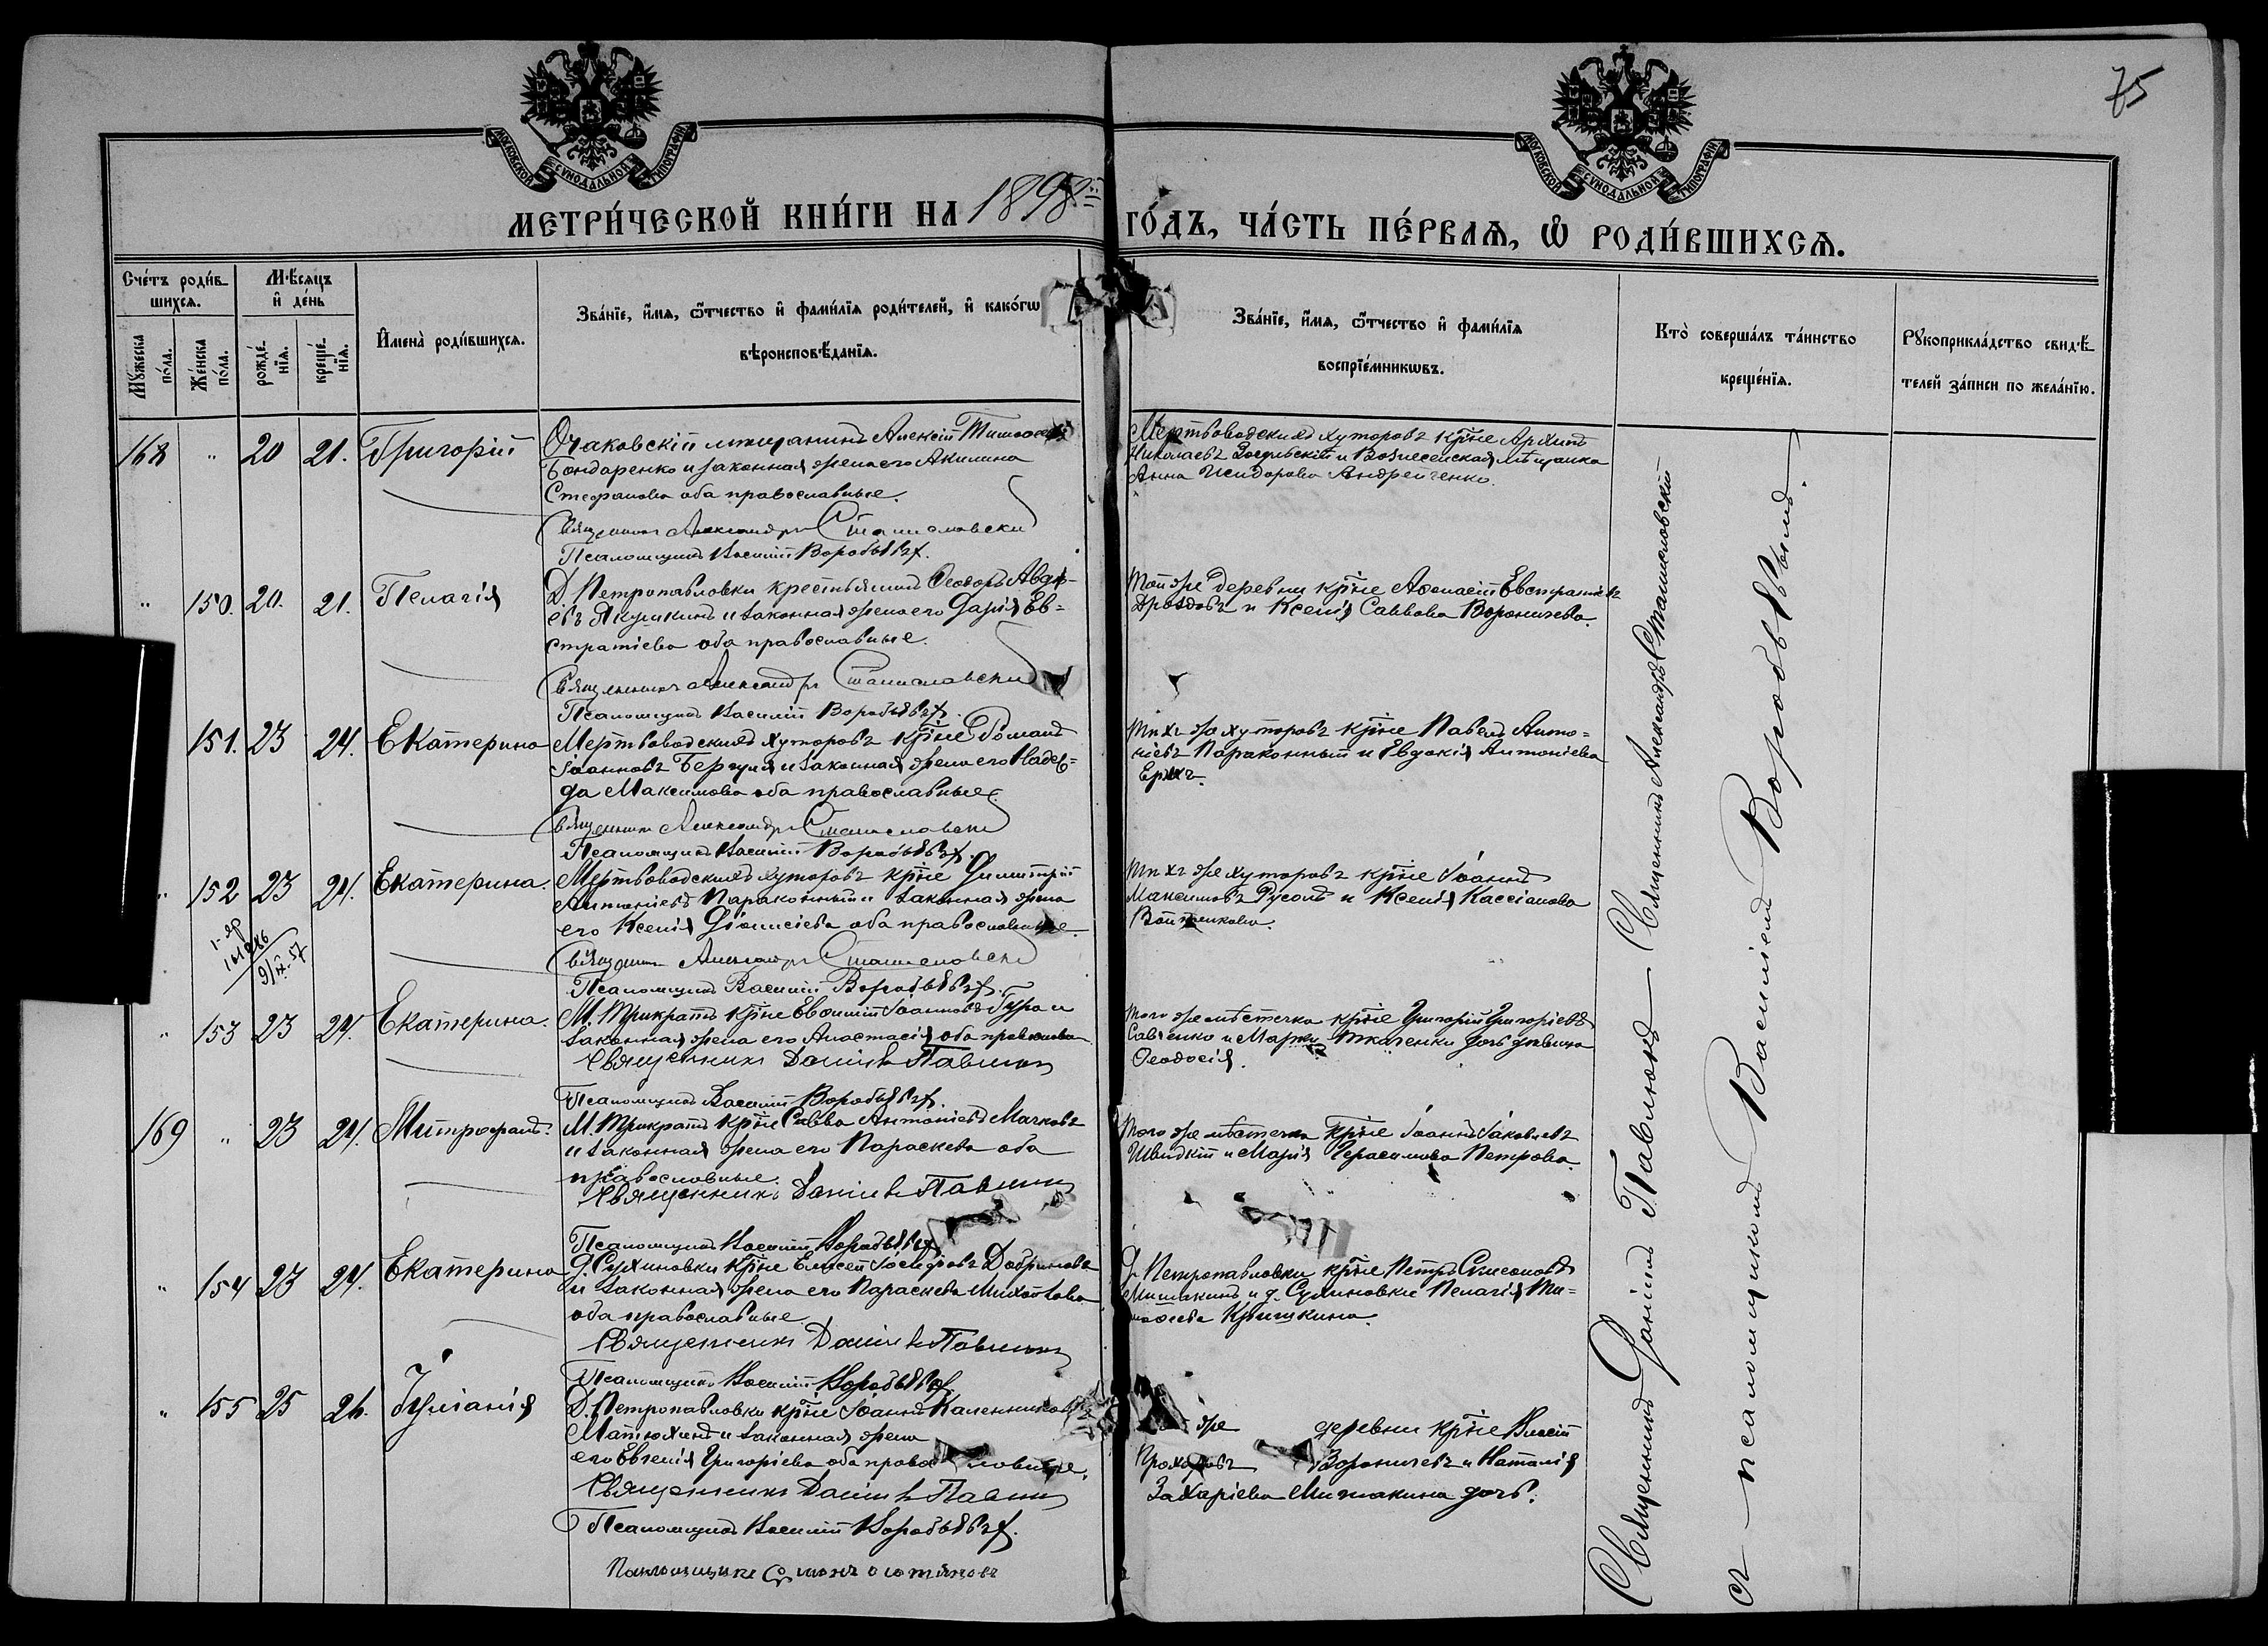 75
МОСКОВСКОЙ СУНОДАЛЬНОЙ ТИПОГРАФІИ
МОСКОВСКОЙ СУНОДАЛЬНОЙ ТИПОГРАФІИ
МЕТРИ́ЧЕСКОЙ КНИ́ГИ НА 1898й ГО́ДЪ, ЧА́СТЬ ПЕ́РВАѦ, Ѡ҆ РОДИ́ВШИХСѦ.
Сче́тъ роди́в
шихсѧ.
Мѣ́сѧцъ
и҆ де́нь
Мꙋ́жеска по́ла.
Же́нска по́ла.
рожде́нїѧ.
креще́нїѧ.
И҆мена̀ роди́вшихсѧ.
Зва́нїе, и҆́мѧ, ѻ҆́тчество и҆ фами́лїѧ роди́телей, и҆ како́гѡ
вѣроисповѣ́данїѧ.
Зва́нїе, и҆́мѧ, ѻ҆́тчество и҆ фами́лїѧ
воспрїе́мникѡвъ.
Кто̀ соверша́лъ та́инство
креще́нїѧ.
Рꙋкоприкла́дство свидѣ́
телей за́писи по жела́нїю.
168 " 20 21. Григорій
Очаковскій мѣщанинъ Алексій
Бондаренко и законная жена его Акилина
Стефанова оба православные.
Священникъ Александръ Станиславскій
Псаломщикъ Василій Воробьевъ.
Мертвоводскихъ хуторовъ кр̃не Архипъ
Николаевъ и Вознесенская мѣщанка
Анна Исидорова Андрейченко.
" 150. 20. 21. Пелагія
Д. Петропавловки крестьянинъ Ѳеодоръ Авдѣ-
евъ Якушкинъ и законная жена его Дарія Ев=
стратіева оба православные.
Священникъ Александръ Станиславскій
Псаломщикъ Василій Воробьевъ.
Той же деревни кр̃не Аѳанасій Евстратіевъ
Дроздовъ и Ксенія Саввова Воропичева.
151. 23 24. Екатерина
Мертвоводскихъ хуторовъ кр̃не Романъ
Іоанновъ и законная жена его Надеж=
да Максимова оба православные.
Священникъ Александръ Станиславскій
Псаломщикъ Василій Воробьевъ.
Тѣхъ же хуторовъ кр̃не Павелъ Анто=
ніевъ Параконный и Евдокія Антоніева
" 152 23 24. Екатерина.
Мертвоводскихъ хуторовъ кр̃не Димитрій
Антоніевъ Параконный и законная жена
его Ксенія Діонисіева оба православные.
Священникъ Александръ Станиславскій
Псаломщикъ Василій Воробьевъ.
Тѣхъ же хуторовъ кр̃не Іоаннъ
Максимовъ Русолъ и Ксенія Кассіанова
" 153 23 24. Екатерина.
М. Трикратъ кр̃не Евѳимій Іоанновъ Гура и
законная жена его Анастасія оба православн.
Священникъ Даніилъ Павлюкъ
Псаломщикъ Василій Воробьевъ.
Того же мѣстечка кр̃не Григорій Григоріевъ
Савченко и Марка Ткаченки дочь дѣвица
Ѳеодосія.
169 " 23 24. Митрофанъ.
М. Трикратъ кр̃не Савва Антоніевъ Мачковъ
и законная жена его Параскева оба
православные.
Священникъ Даніилъ Павлюкъ
Псаломщикъ Василій Воробьевъ
Того же мѣстечка кр̃не Іоаннъ Іаковлевъ
Швидкій и Марія Герасимова Петрова.
" 154 23 24. Екатерина
Д. Сухиновки кр̃не Елисей Іосифовъ Добриновъ
и законная жена его Параскева Михайлова
оба православные.
Священникъ Даніилъ Павлюкъ
Псаломщикъ Василій Воробьевъ
Д. Петропавловки кр̃не Петръ Симеоновъ
Митякинъ и д. Сухиновки Пелагія Ти=
моѳеева Кричкина.
" 155 25 26. Іуліанія
Д. Петропавловки кр̃не Іоаннъ Каленниковъ
Матюхинъ и законная жена
его Евгенія Григоріева оба православные.
Священникъ Даніилъ Павлюкъ
Псаломщикъ Василій Воробьевъ.
же деревни кр̃не
Прохоровъ Воропичевъ и Наталія
Захаріева Митякина дочь.
Священникъ Даніилъ Павлюкъ — Священникъ Александръ Станиславскій
съ псаломщикомъ Василіемъ Воробьевымъ.